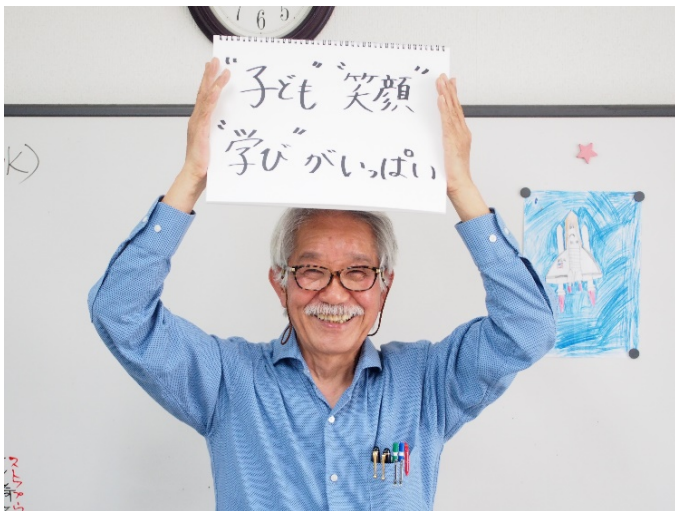 6 5
"子ども" "笑顔"
"学び"がいっぱい
K)